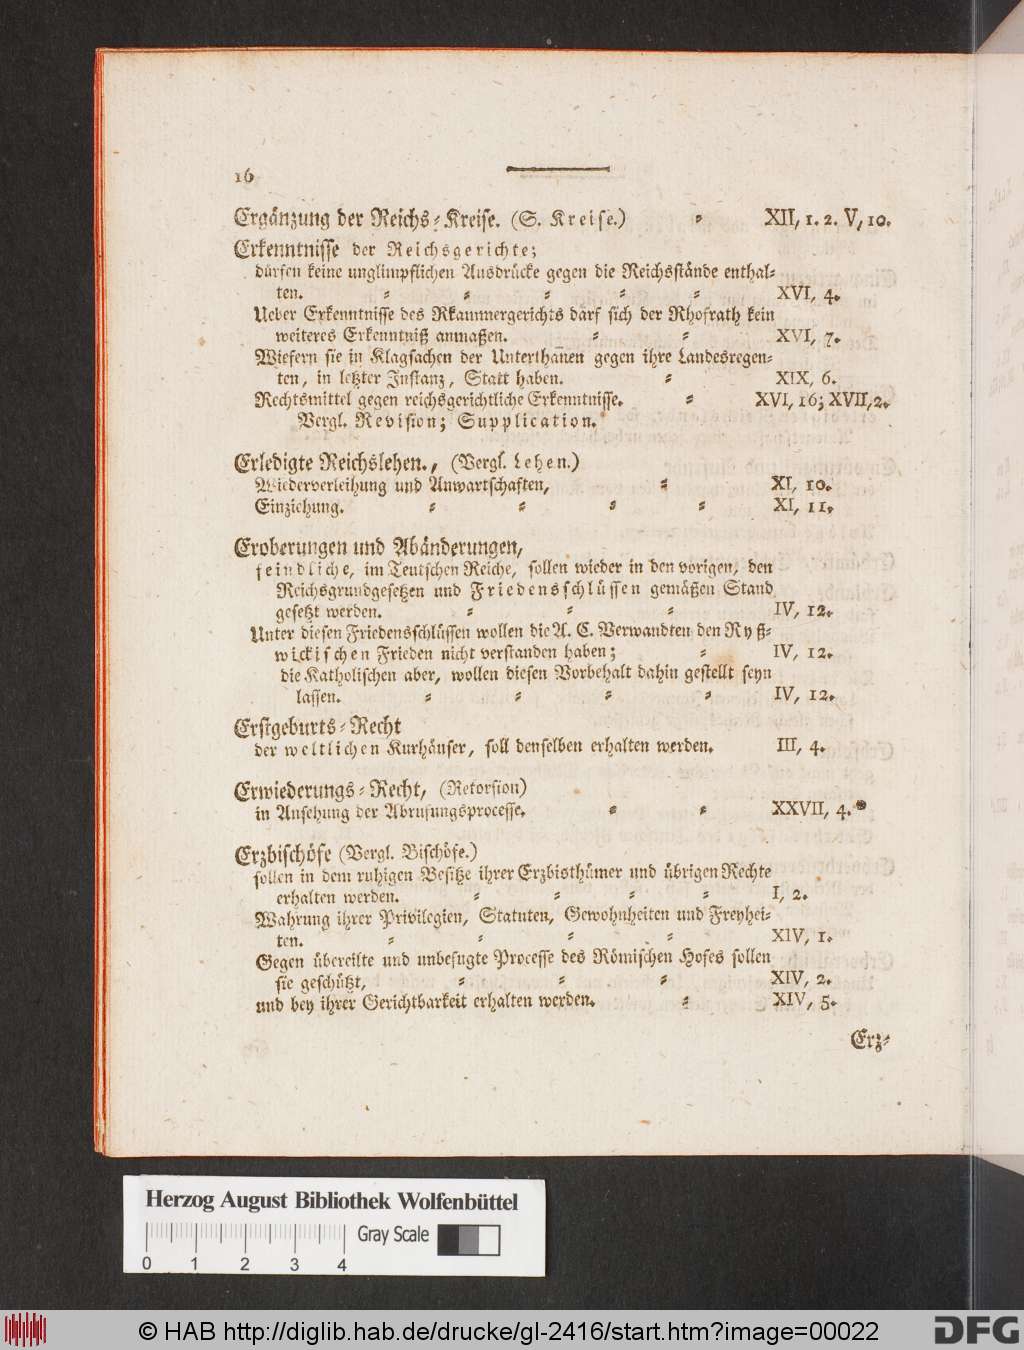 16
Ergänzung der Reichs-Kreise. (S. Kreise.) - XII, 1. 2. V, 10.
Erkenntnisse der Reichsgerichte;
dürfen keine unglimpflichen Ausdrücke gegen die Reichsstände enthal-
ten. - - - - - XVI, 4.
Ueber Erkenntnisse des Rkammergerichts darf sich der Rhofrath kein
weiteres Erkenntniß anmaßen. - - XVI, 7.
Wiefern sie in Klagsachen der Unterthanen gegen ihre Landesregen-
ten, in letzter Instanz, Statt haben. - XIX, 6.
Rechtsmittel gegen reichsgerichtliche Erkenntnisse. - XVI, 16; XVII, 2.
Vergl. Revision; Supplication.
Erledigte Reichslehen., (Vergl. Lehen.)
Wiederverleihung und Anwartschaften, - XI, 10.
Einziehung. - - - - XI, 11.
Eroberungen und Abänderungen,
feindliche, im Teutschen Reiche, sollen wieder in den vorigen, den
Reichsgrundgesetzen und Friedensschlüssen gemäßen Stand
gesetzt werden. - - - IV, 12.
Unter diesen Friedensschlüssen wollen die A. C. Verwandten den Ryß-
wickischen Frieden nicht verstanden haben; - IV, 12.
die Katholischen aber, wollen diesen Vorbehalt dahin gestellt seyn
lassen. - - - - IV, 12.
Erstgeburts-Recht
der weltlichen Kurhäuser, soll denselben erhalten werden. III, 4.
Erwiederungs-Recht, (Retorsion)
in Ansehung der Abrufungsprocesse. - - XXVII, 4.
Erzbischöfe (Vergl. Bischöfe.)
sollen in dem ruhigen Besitze ihrer Erzbisthümer und übrigen Rechte
erhalten werden. - - - - I, 2.
Wahrung ihrer Privilegien, Statuten, Gewohnheiten und Freyhei-
ten. - - - - XIV, 1.
Gegen übereilte und unbefugte Processe des Römischen Hofes sollen
sie geschützt, - - - XIV, 2.
und bey ihrer Gerichtbarkeit erhalten werden. - XIV, 5.
Erz-
Herzog August Bibliothek Wolfenbüttel
Gray Scale
0 1 2 3 4
© HAB http://diglib.hab.de/drucke/gl-2416/start.htm?image=00022
DFG